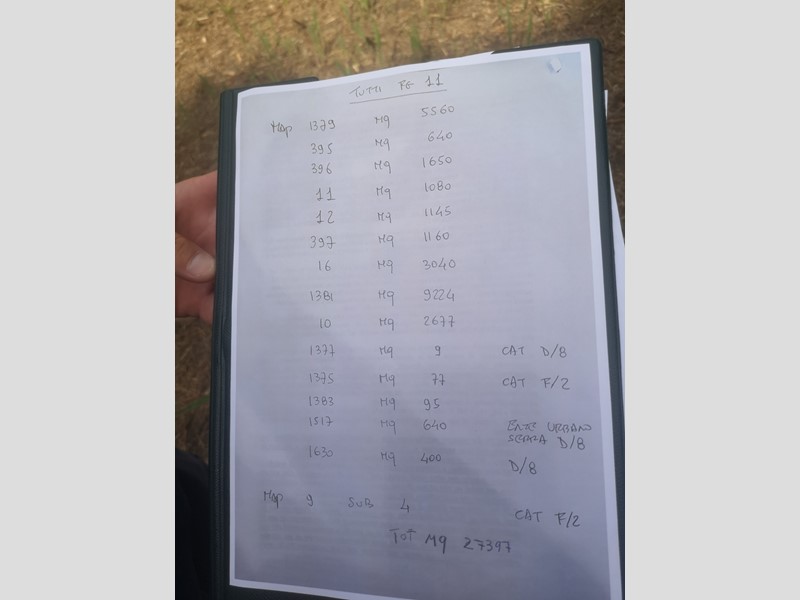 TUTTI FG 11
Map 1379 Mq 5560
395 Mq 640
396 Mq 1650
11 Mq 1080
12 Mq 1145
397 Mq 1160
16 Mq 3040
1381 Mq 9224
10 Mq 2677
1377 Mq 9 CAT D/8
1375 Mq 77 CAT F/2
1383 Mq 95
1517 Mq 640 ENTE URBANO
SERRA D/8
1630 Mq 400 D/8
Map 9 SUB 4 CAT F/2
TOT Mq 27397